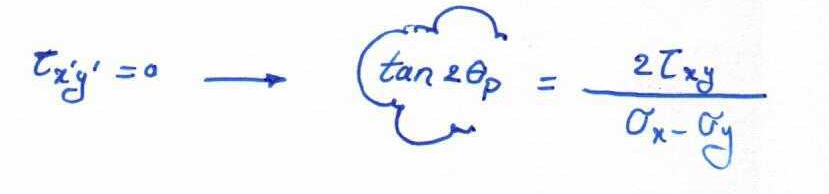 τx'y' = 0 ⟶ tan 2θp = 2τxy / σx - σy